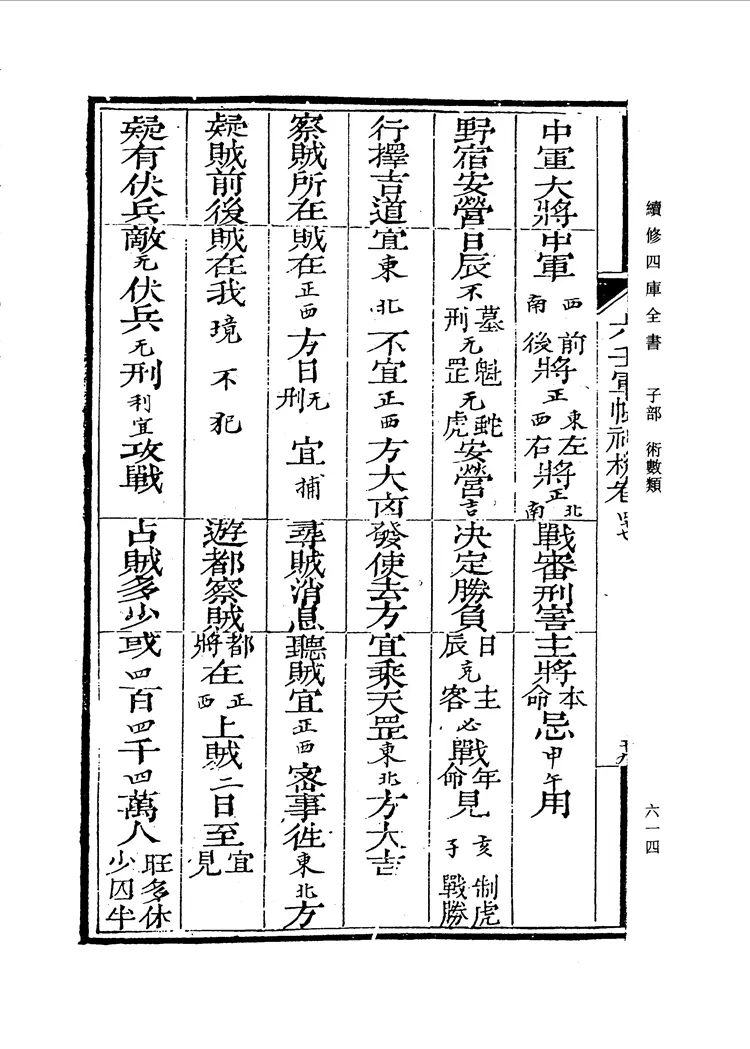 續修四庫全書 子部 術數類
六一四
六壬軍帳神機卷
中軍大將中軍西南前後將正東西左右將正北南 戰審刑害主將本命忌甲午用
野宿安營日辰不墓刑无魁罡无蛇虎安營吉 决定勝負日辰克主客必戰年命見亥子制虎戰勝
行擇吉道宜東北不宜正西方大凶 發使去方宜乘天罡東北方大吉
察賊所在賊在正西方日无刑宜捕 尋賊消息聽賊宜正西密事徃東北方
疑賊前後賊在我境不犯 遊都察賊都將在正西上賊二日至宜見
疑有伏兵敵无伏兵无刑利宜攻戰 占賊多少或四百四千四萬人旺多休少囚半